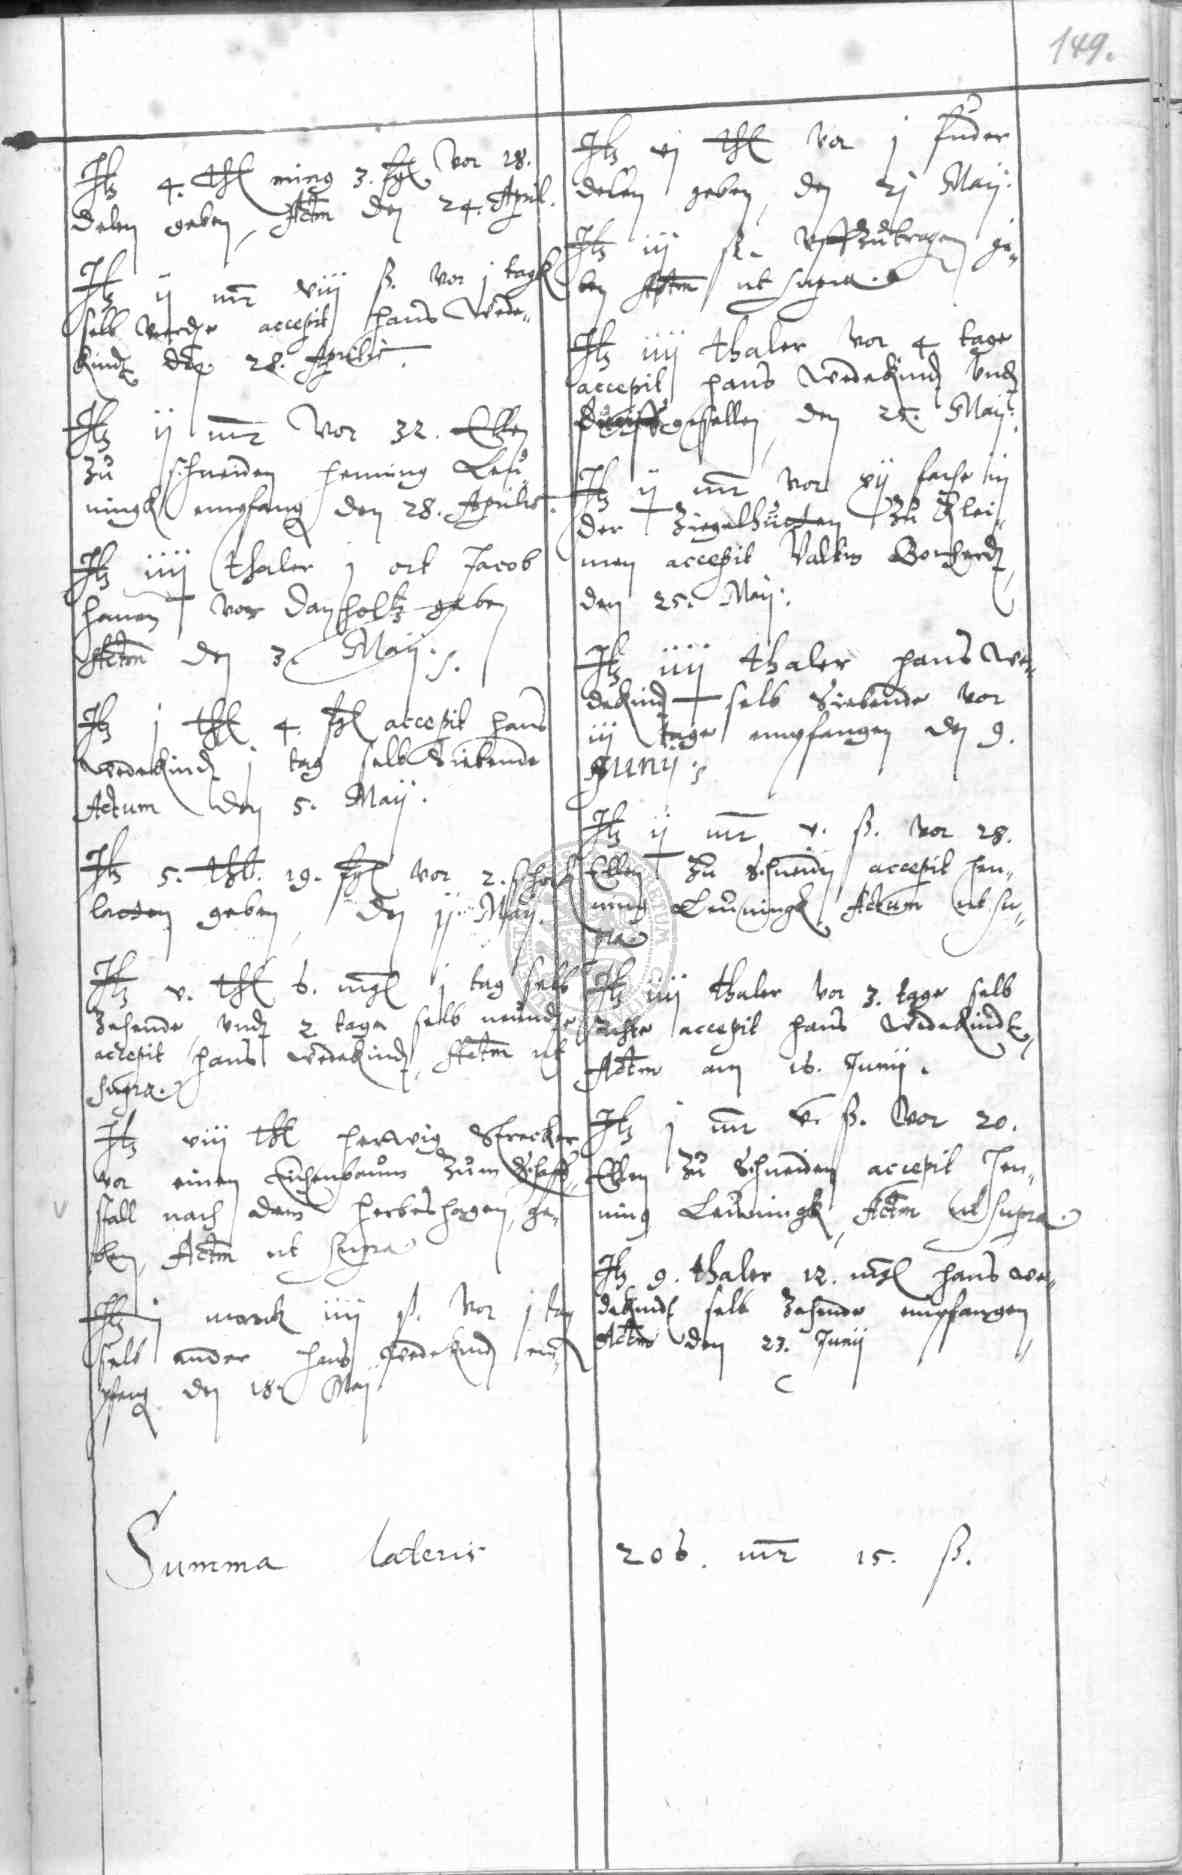 149.
Itz 4. thl ming 3. fgl vor 28.
delen geben, Actm den 24. April.
Itz ij mr viij ß. vor j tagk
selb vierde accepit Hans Wede-
kindt den 28. Aprilis.
Itz ij mr vor 32. Ellen
zu schneiden Henning Leu
ningk empfang den 28. Aprilis.
Itz iiij thaler j ort Jacob
Hanen vor Danholtz geben
Actm den 3. Maij.
Itz j thl 4. fgl accepit Hans
Wedekindt j tag selb Siebende
Actum den 5. Maij.
Itz 5. thl. 19. fgl vor 2. schock
latten geben, den ij. Maij.
Itz v. thl 6. mgl j tag selb
Zehende, undt 2 tage selb neundte
accepit Hans Wedekindt, Actm ut
supra.
Itz viij thl Herwig Strecker
vor einen Eichenbaum zum Schaff-
stall nach dem Herbeshagen, ge-
ben, Actm ut supra
Itz j marck iiij ß. vor j tag
selb ander Hans Wedekindt em-
pfang den 18. Maij
Itz vj thl vor j fuder
delen geben, den 21 Maij.
Itz iij ß. Uffzutragen ge-
ben Actm ut supra.
Itz iiij thaler vor 4 tage
accepit Hans Wedekindt undt
gesellen, den 25. Maij.
Itz ij mr vor xij fache in
der Ziegelhütten zu Klei-
men accepit Valtin Borcherdt,
den 25. Maij.
Itz iiij thaler Hans We-
dekindt selb Siebende vor
iij tage empfangen den 9.
Junij.
Itz ij mr v. ß. vor 28.
Ellen zu Schneiden accepit Hen-
ning Leuningk, Actum ut su-
pra
Itz iiij thaler vor 3. tage selb
achte accepit Hans Wedekindt,
Actm am 16. Junij.
Itz j mr v. ß. vor 20.
Ellen zu Schneiden accepit Hen-
ning Leuningk, Actm ut supra.
Itz 9. thaler 12. mgl Hans We-
dekindt selb Zehende empfangen,
Actm den 23. Junij
Summa lateris 206. mr 15. ß.